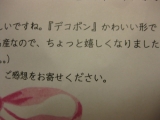 しいですね。『デコポン』かわいい形で
産なので、ちょっと嬉しくなりました
。)
ご感想をお寄せください。